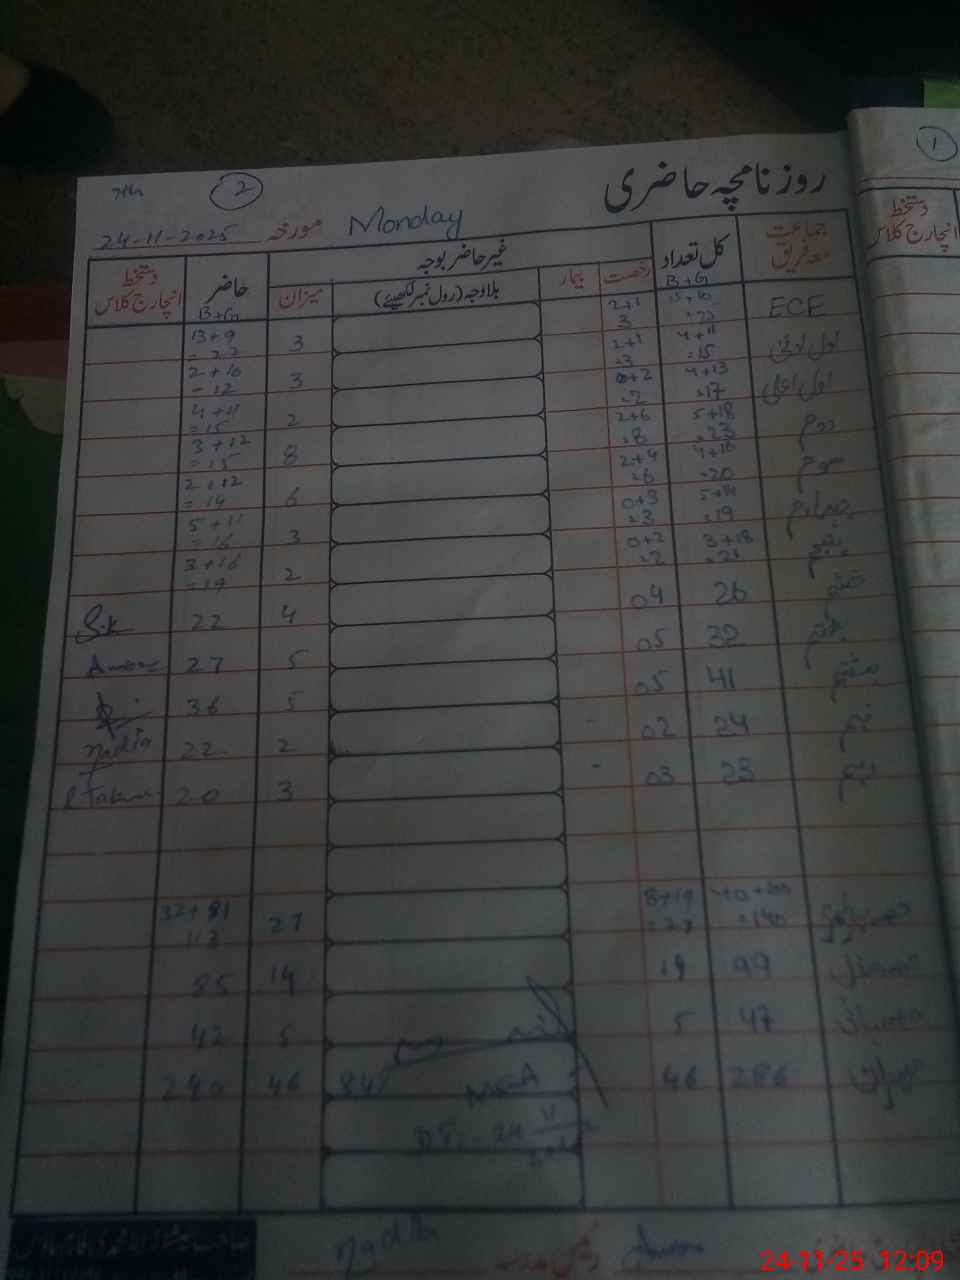 روزنامچہ حاضری
2
24-11-2025 مورخہ Monday
جماعت معہ فریق کل تعداد B+G غیر حاضر بوجہ حاضر B+G دستخط انچارج کلاس
رخصت بیمار بلاوجہ (رول نمبر لکھیئے) میزان
ECE 2+1 3 3 13+9
اول ادنیٰ 4+11 =15 2+1 =3 3 2+10 =12
اول اعلیٰ 4+13 =17 0+2 =2 2 4+11 =15
دوم 5+18 =23 2+6 =8 8 3+12 =15
سوم 4+16 =20 2+4 =6 6 2+12 =14
چہارم 5+14 =19 0+3 =3 3 5+11 =16
پنجم 3+18 =21 0+2 =2 2 3+16 =19
ششم 26 04 4 22
ہفتم 32 05 5 27
ہشتم 41 05 5 36
نہم 24 02 - 2 22 nadia
دہم 23 03 - 3 20
40+100 =140 8+19 =27 27 32+81 113
99 14 14 85
47 5 5 42
286 46 84% 46 240
24 11
nadia رئیس مدرسہ
1
دستخط انچارج کلاس
24-11-25 12:09